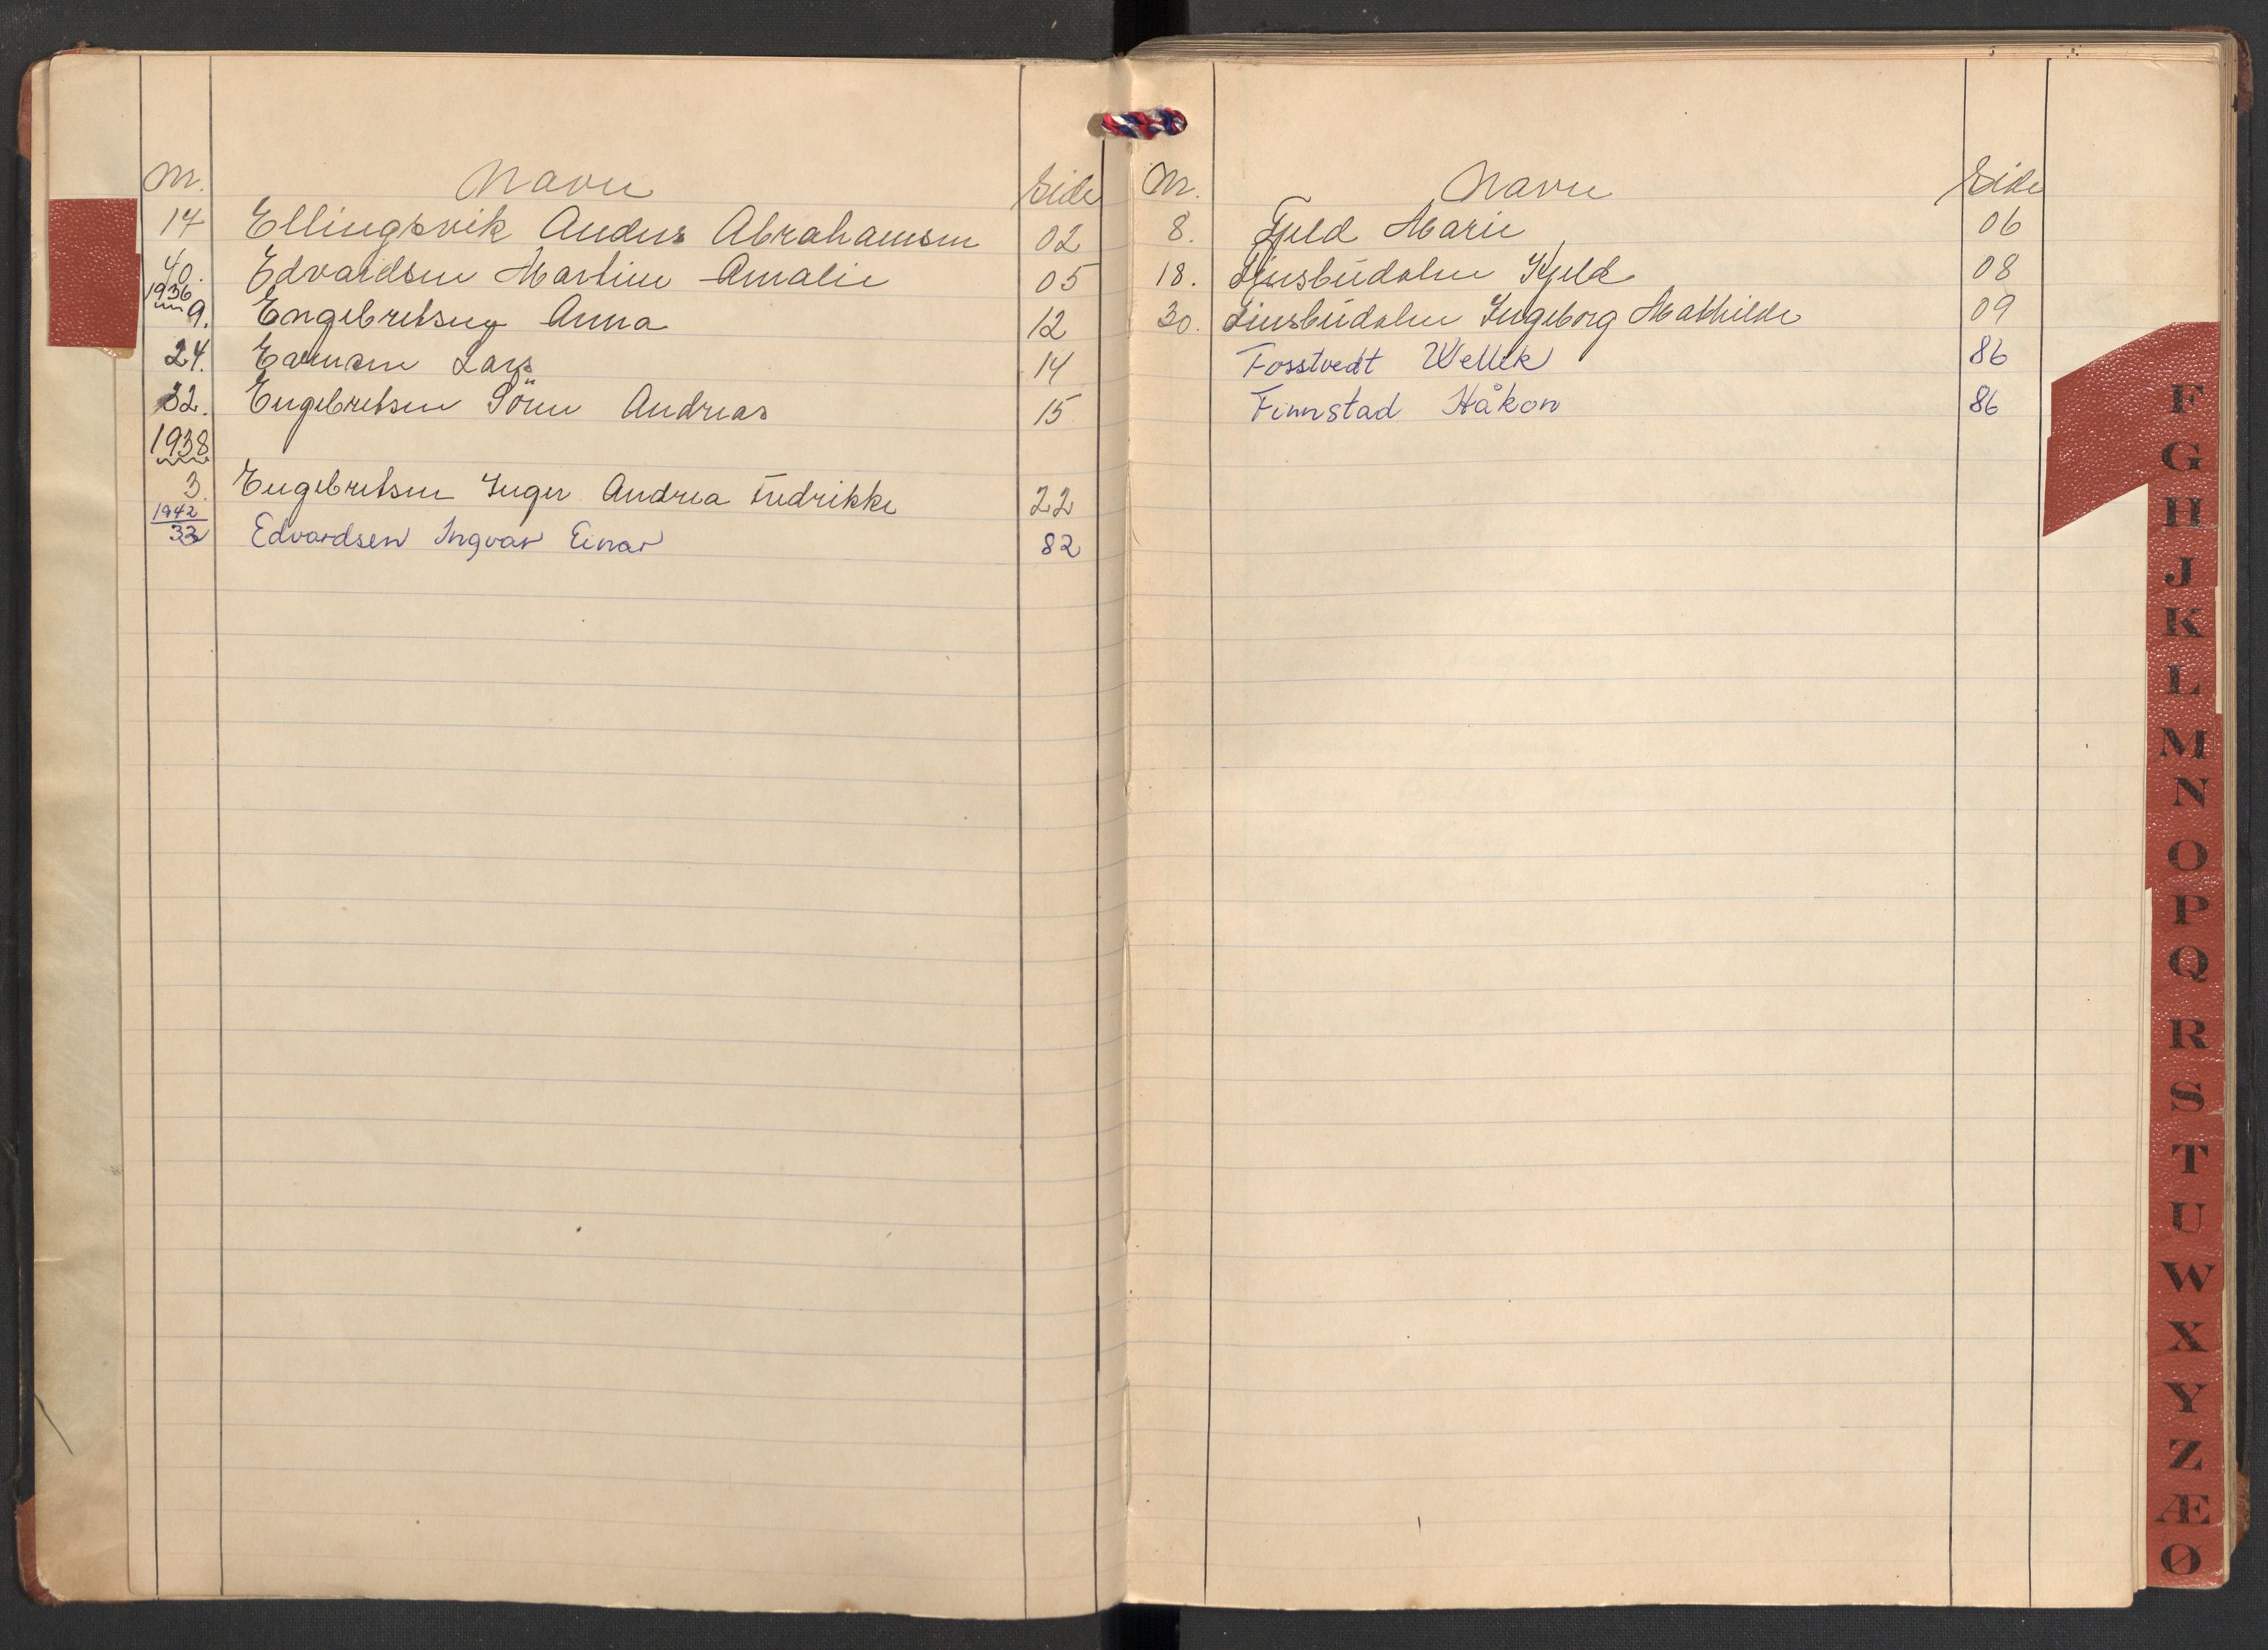 Nr. Navn Side
14 Ellingsvik Anders Abrahamsen 02
40. Edvardsen Martine Amalie 05
1936
9. Engebretsen Anna 12
24. Evensen Lars 14
32. Engebretsen Sönn Andreas 15
1938
3. Engebretsen Inger Andrea Fredrikke 22
1942
33 Edvardsen Ingvar Einar 82
Nr. Navn Side
8. Fjeld Marie 06
18. Kjeld 08
30. Ingeborg Mathilde 09
Fosstvedt 86
Finnstad Håkon 86
F
G
H
J
K
L
M
N
O
P
Q
R
S
T
U
W
X
Y
Z
Æ
Ø